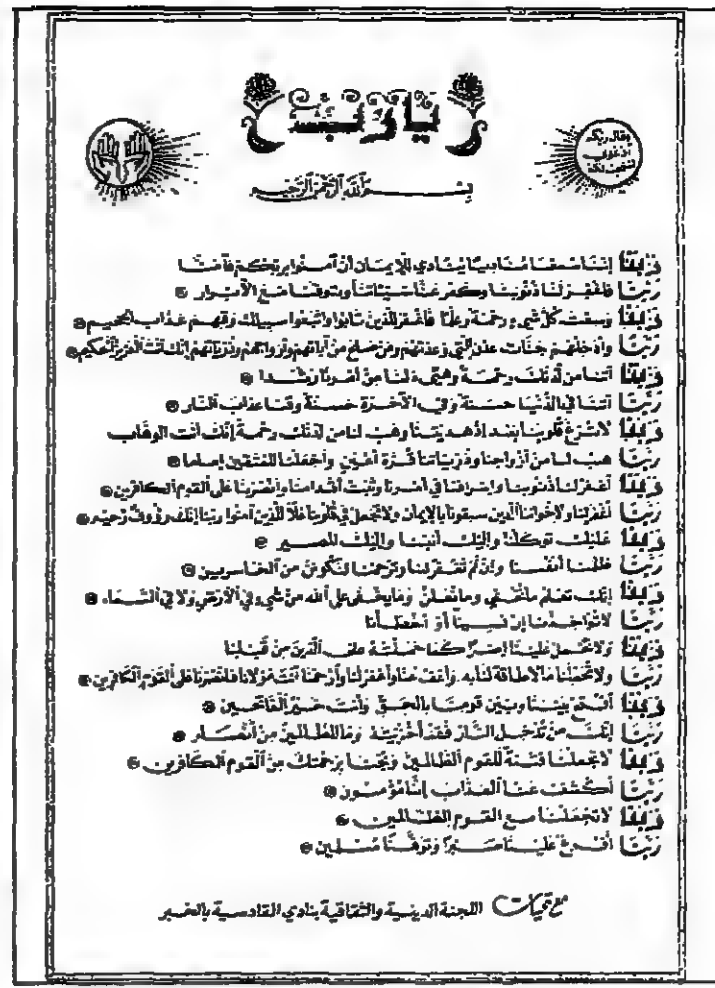 يا رب
وقال ربكم
ادعوني
أستجب لكم
بسم الله الرحمن الرحيم
رَبَّنَا إننا سمعنا مناديا ينادي للإيمان أن آمنوا بربكم فآمنا
رَبَّنَا فاغفر لنا ذنوبنا وكفر عنا سيئاتنا وتوفنا مع الأبرار
رَبَّنَا وسعت كل شيء رحمة وعلما فاغفر للذين تابوا واتبعوا سبيلك وقهم عذاب الجحيم
رَبَّنَا وأدخلهم جنات عدن التي وعدتهم ومن صلح من آبائهم وأزواجهم وذرياتهم إنك أنت العزيز الحكيم
رَبَّنَا آتنا من لدنك رحمة وهيىء لنا من أمرنا رشدا
رَبَّنَا آتنا في الدنيا حسنة وفي الآخرة حسنة وقنا عذاب النار
رَبَّنَا لا تزغ قلوبنا بعد إذ هديتنا وهب لنا من لدنك رحمة إنك أنت الوهاب
رَبَّنَا هب لنا من أزواجنا وذرياتنا قرة أعين واجعلنا للمتقين إماما
رَبَّنَا أغفر لنا ذنوبنا وإسرافنا في أمرنا وثبت أقدامنا وانصرنا على القوم الكافرين
رَبَّنَا أغفر لنا ولإخواننا الذين سبقونا بالإيمان ولا تجعل في قلوبنا غلا للذين آمنوا ربنا إنك رؤوف رحيم
رَبَّنَا عليك توكلنا وإليك أنبنا وإليك المصير
رَبَّنَا ظلمنا أنفسنا وإن لم تغفر لنا وترحمنا لنكونن من الخاسرين
رَبَّنَا إنك تعلم ما نخفي وما نعلن وما يخفى على الله من شيء في الأرض ولا في السماء
رَبَّنَا لا تؤاخذنا إن نسينا أو أخطأنا
رَبَّنَا ولا تحمل علينا إصرا كما حملته على الذين من قبلنا
رَبَّنَا ولا تحملنا ما لا طاقة لنا به واعف عنا واغفر لنا وارحمنا أنت مولانا فانصرنا على القوم الكافرين
رَبَّنَا أفتح بيننا وبين قومنا بالحق وأنت خير الفاتحين
رَبَّنَا إنك من تدخل النار فقد أخزيته وما للظالمين من أنصار
رَبَّنَا لا تجعلنا فتنة للقوم الظالمين ونجنا برحمتك من القوم الكافرين
رَبَّنَا أكشف عنا العذاب إنا مؤمنون
رَبَّنَا لا تجعلنا مع القوم الظالمين
رَبَّنَا أفرغ علينا صبرا وتوفنا مسلمين
مع تحيات اللجنة الدينية والثقافية بنادي القادسية بالخبر